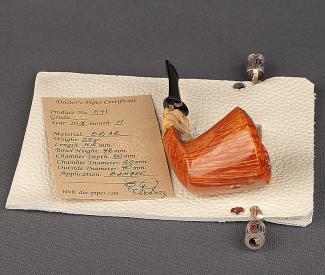 Doctor's Pipes Certificate
Product No.: 641
Grade:
Year: 2018 month: 11
Material: BRIAR
Weight: gr.
Length: mm.
Bowl Height: 48 mm.
Chamber Depth: 40 mm.
Chamber Diameter: 20 mm.
Outside Diameter: mm.
Application: BAMBOO
Web. doc-pipes.com